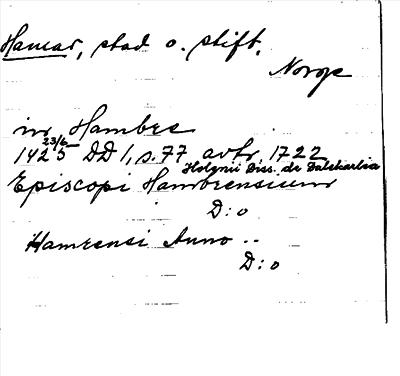 Hamar, stad o. stift,
Norge
in Hambre
23/6
1425 DD 1, s. 77 avtr. 1722
Holgnii Diss. de Dalekarlia
Episcopi Hambrensium
D:o
Hamrensi Anno ..
D:o